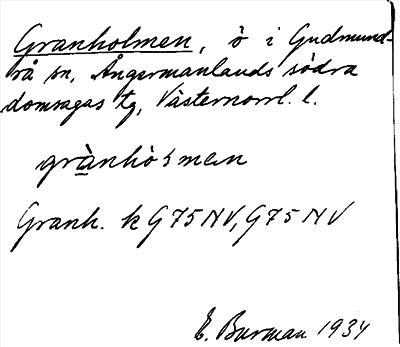 Granholmen, ö i Gudmund-
rå sn, Ångermanlands södra
domsagas tg, Västernorrl. l.
grànhòlmen
Granh. k G75NV, G75NV
E. Burman 1934